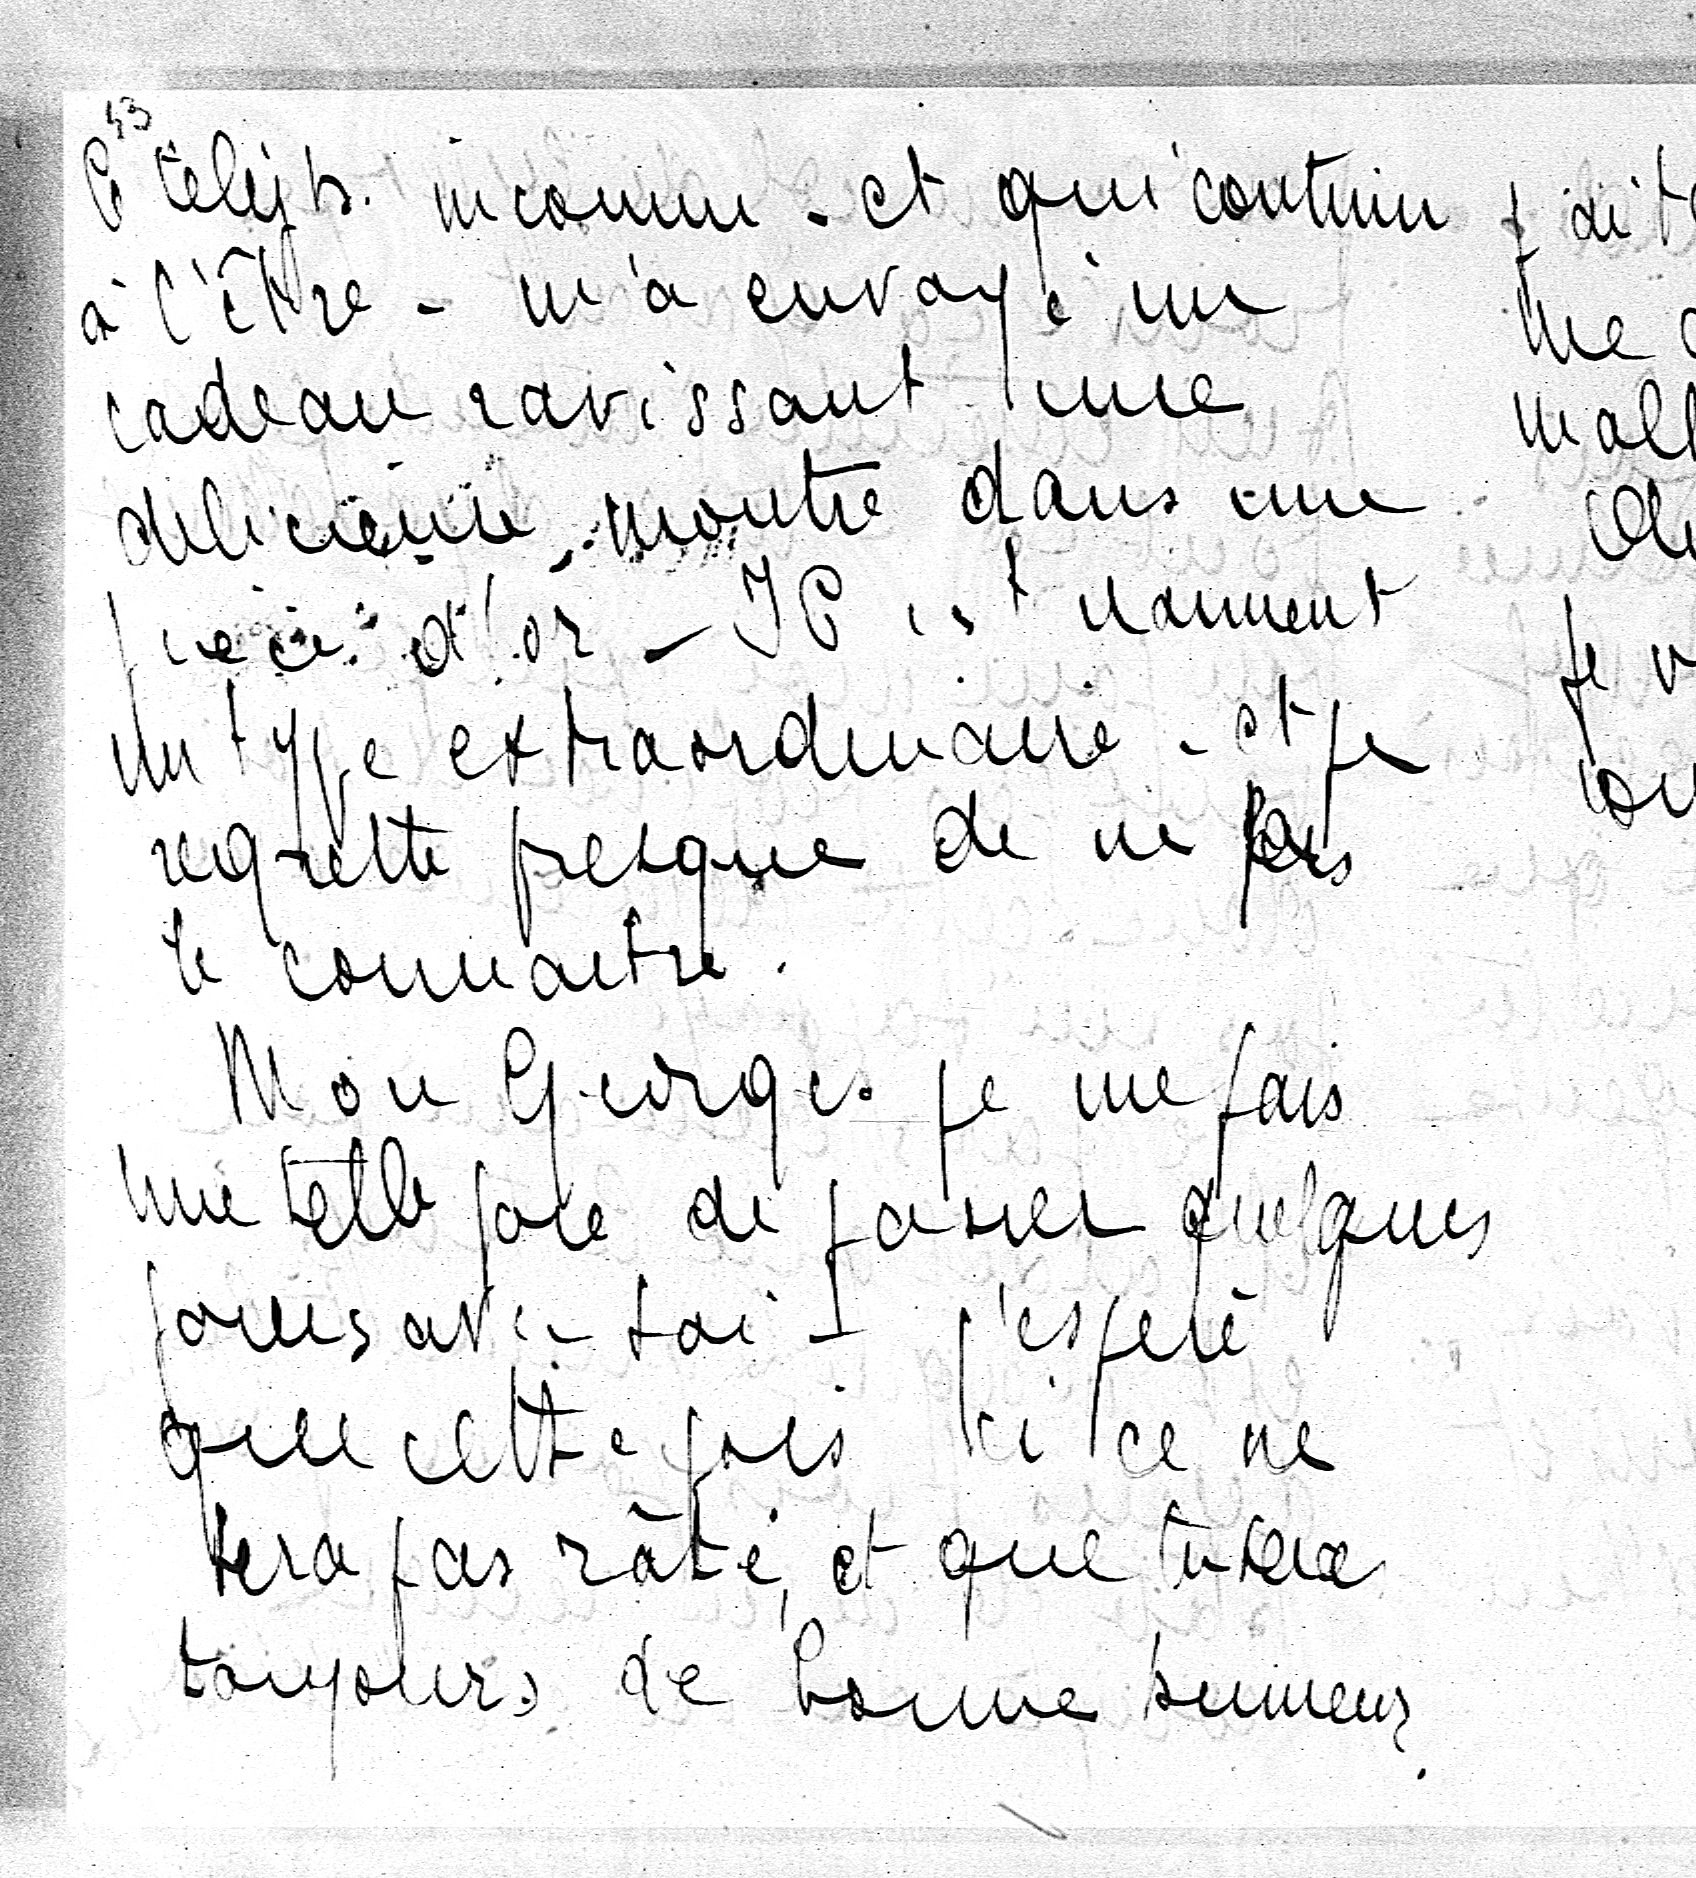 43
le téléph. inconnu - et qui continu
à l'être - m'a envoyé un
cadeau ravissant une
délicieuse montre dans une
pièce d'or - Il est vraiment
un type extraordinaire - et je
regrette presque de ne pas
le connaitre.
Mon Georges je me fais
une telle joie de passer quelques
jours avec toi - j'espère
que cette fois ci ce ne
sera pas râté, et que tu seras
toujours de bonne humeur.
me
je